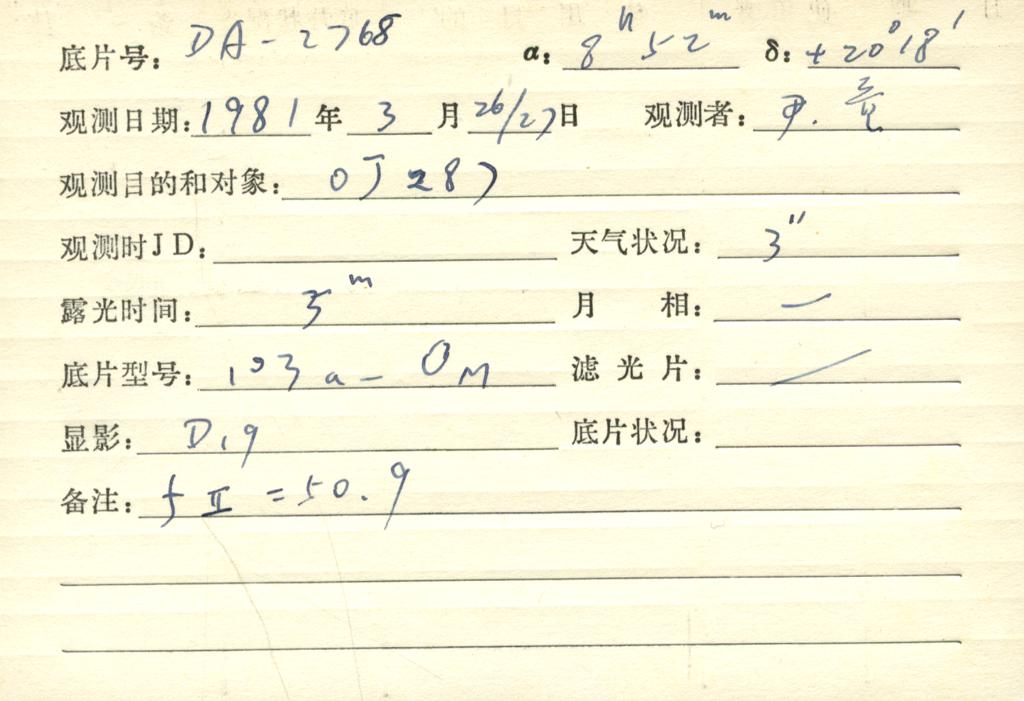 底片号: DA-2768 α: 8ʰ 52ᵐ δ: +20°18′
观测日期: 1981 年 3 月 26/27 日 观测者: 尹.
观测目的和对象: OJ 287
观测时JD: 天气状况: 3″
露光时间: 5ᵐ 月 相: —
底片型号: 103a-O M 滤光片: /
显影: D19 底片状况:
备注: f II = 50.9